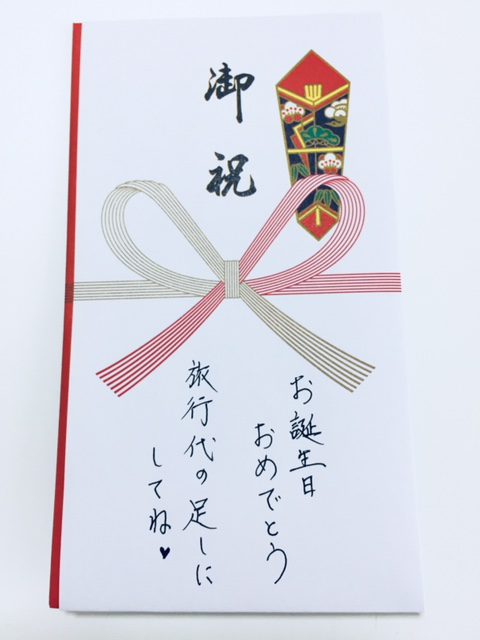 御祝
お誕生日
おめでとう
旅行代の足しに
してね♥